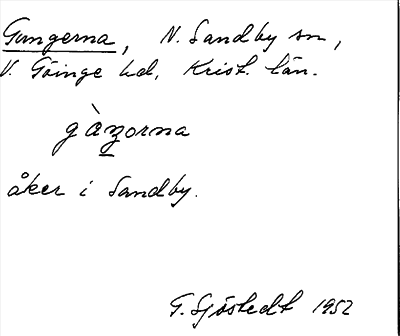 Gungerna, N. Sandby sn,
V. Göinge hd, Krist. län.
gàŋorna
åker i Sandby.
G. Sjöstedt 1952